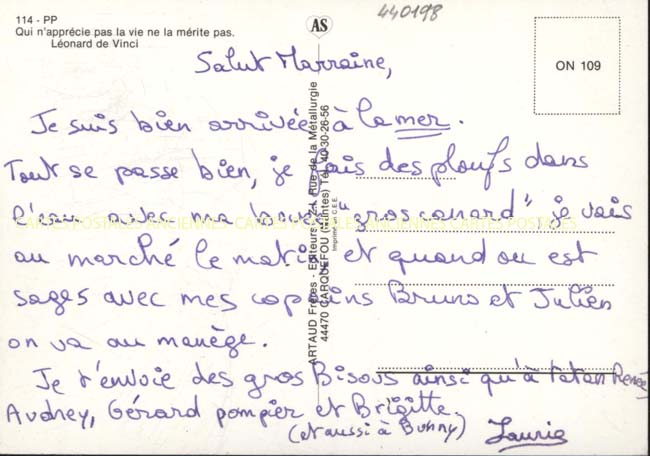 114 - PP
Qui n'apprécie pas la vie ne la mérite pas.
Léonard de Vinci
AS
440198
ON 109
Salut Marraine,
Je suis bien arrivée à la mer.
Tout se passe bien, je fais des ploufs dans
l'eau avec ma bouée "gros canard" je vais
au marché le matin et quand on est
sages avec mes copains Bruno et Julien
on va au manège.
Je t'envoie des gros Bisous ainsi qu'à tatan Renée,
Audrey, Gérard pompier et Brigitte.
(et aussi à Bunny)
Laurie
ARTAUD Frères - Editeurs - Z.I. Rue de la Métallurgie
44470 CARQUEFOU (Nantes) Tél. 40-30-26-56
Imprimé en C.E.E.
CARTES POSTALES ANCIENNES CARTES POSTALES ANCIENNES CARTES POSTALES